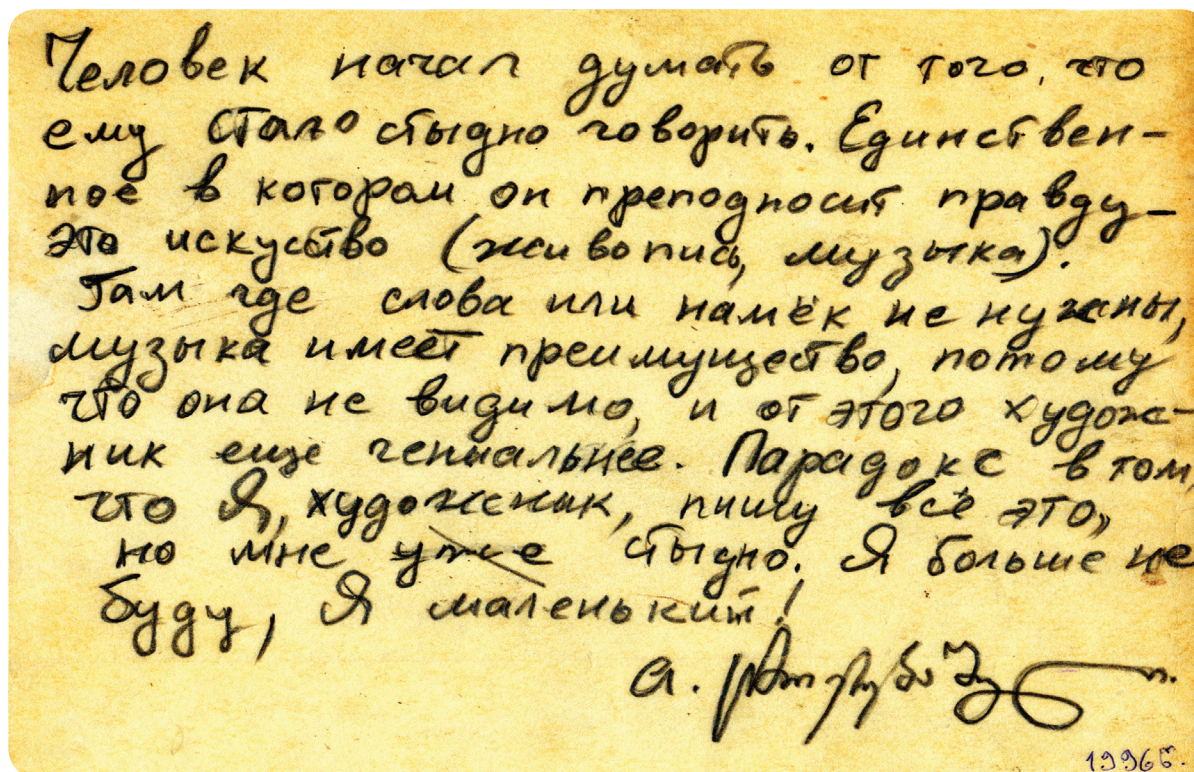 Человек начал думать от того, что
ему стало стыдно говорить. Единствен-
ное в котором он преподносит правду –
это искуство (живопись, музыка).
Там где слова или намёк не нужны,
музыка имеет преимущество, потому
что она не видимо, и от этого худож-
ник еще гениальнее. Парадокс в том,
что Я, художник, пишу всё это,
но мне уже стыдно. Я больше не
буду, Я маленький!
а.
1996г.